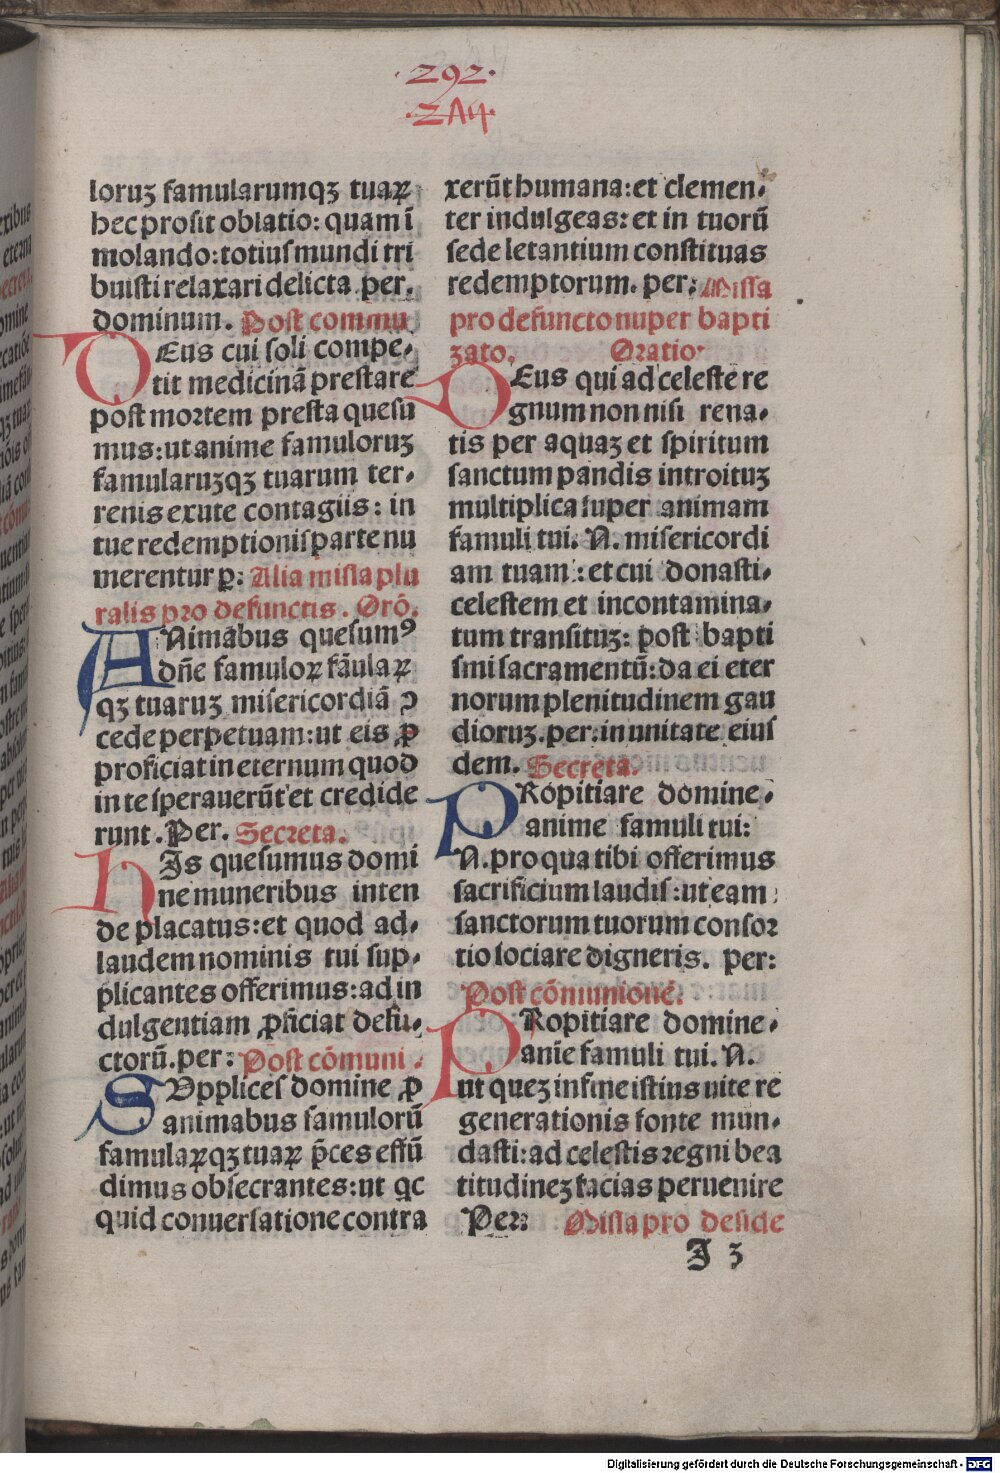 .292.
.2A4.
loruꝫ famularumqꝫ tuaꝝ
hec prosit oblatio: quam ī
molando: totius mundi tri
buisti relaxari delicta per.
dominum. Post commu
DEus cui soli compe-
tit medicinā prestare
post mortem presta quesu
mus: ut anime famuloruꝫ
famularuꝫqꝫ tuarum ter-
renis exute contagiis: in
tue redemptionis parte nu
merentur ꝑ: Alia missa plu
ralis pro defunctis. Orō.
ANimabus quesumꝰ
dn̄e famuloꝝ fāulaꝝ
qꝫ tuaruꝫ misericordiā ↄ
cede perpetuam: ut eis ꝓ
proficiat in eternum quod
in te sperauerūt et credide
runt. Per. Secreta.
hIs quesumus domi
ne muneribus inten
de placatus: et quod ad-
laudem nominis tui sup-
plicantes offerimus: ad in
dulgentiam ꝓficiat defu-
ctorū. per: Post cōmuni.
SUpplices domine ꝓ
animabus famulorū
famulaꝝqꝫ tuaꝝ p̄ces effū
dimus obsecrantes: ut qc
quid conuersatione contra
xerūt humana: et clemen-
ter indulgeas: et in tuorū
sede letantium constituas
redemptorum. per: Missa
pro defuncto nuper bapti
zato. Oratio
DEus qui ad celeste re
gnum non nisi rena-
tis per aquaꝫ et spiritum
sanctum pandis introituꝫ
multiplica super animam
famuli tui. N. misericordi
am tuam: et cui donasti-
celestem et incontamina-
tum transituꝫ: post bapti
smi sacramentū: da ei eter
norum plenitudinem gau
dioruꝫ. per: in unitate eius
dem. Secreta.
PRopitiare domine-
anime famuli tui:
N. pro qua tibi offerimus
sacrificium laudis: ut eam
sanctorum tuorum consor
tio sociare digneris. per:
Post cōmunionē.
PRopitiare domine-
anīe famuli tui. N.
ut queꝫ in fine istius uite re
generationis fonte mun-
dasti: ad celestis regni bea
titudineꝫ facias peruenire
Per: Missa pro deside
I 3
Digitalisierung gefördert durch die Deutsche Forschungsgemeinschaft - DFG